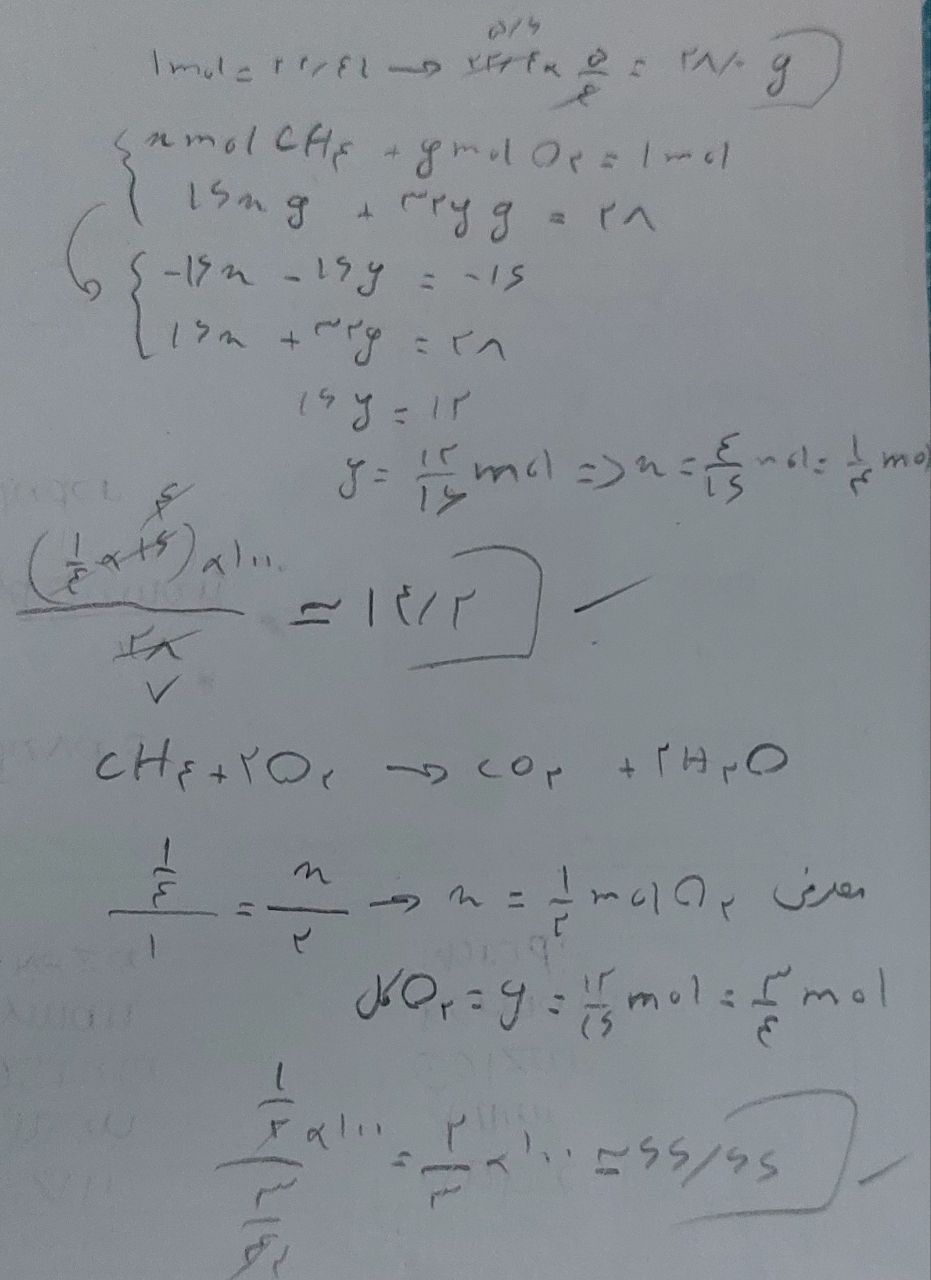 1mol = ۲۲/۴L → ۲۲/۴ × ۵/۴ = ۲۸/۰ g
x mol CH۴ + y mol O۲ = 1 mol
۱۶x g + ۳۲y g = ۲۸
-۱۶x - ۱۶y = -۱۶
۱۶x + ۳۲y = ۲۸
۱۶y = ۱۲
y = ۱۲/۱۶ mol => x = ۴/۱۶ mol = ۱/۴ mol
(۱/۴ × ۱۶) × ۱۰۰ / ۲۸ ≃ ۱۴/۲
۴
۷
CH۴ + ۲O۲ → CO۲ + ۲H۲O
۱/۴ / ۱ = x / ۲ → x = ۱/۲ mol O۲ مصرفی
کل O۲ = y = ۱۲/۱۶ mol = ۳/۴ mol
۱/۲ × ۱۰۰ / ۳/۴ = ۲/۳ × ۱۰۰ ≃ ۶۶/۶۶